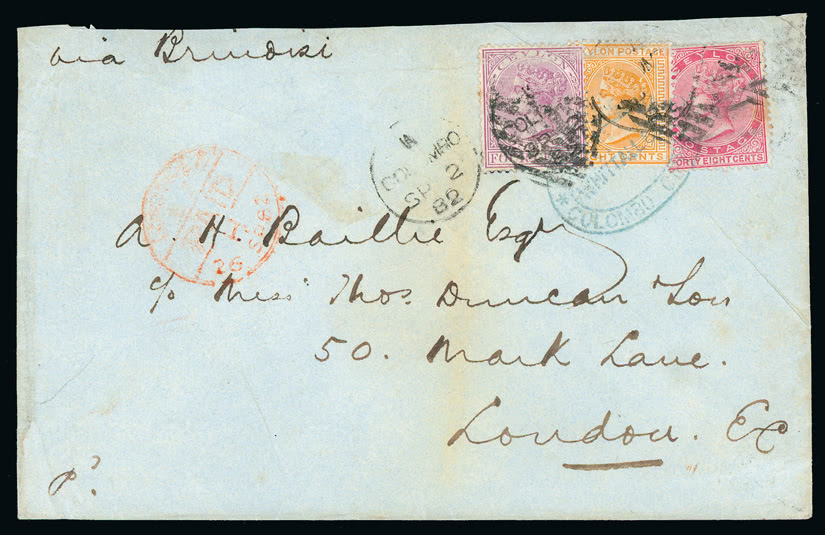 via Brindisi
CEYLON
CEYLON POSTAGE
CEYLON
POSTAGE
FORTY EIGHT CENTS
COLOMBO
SP 2
82
PAID
26
* COLOMBO
A. H Baillie Esqr
c/o Messrs Thos. Duncan & Son
50. Mark Lane.
London. EC